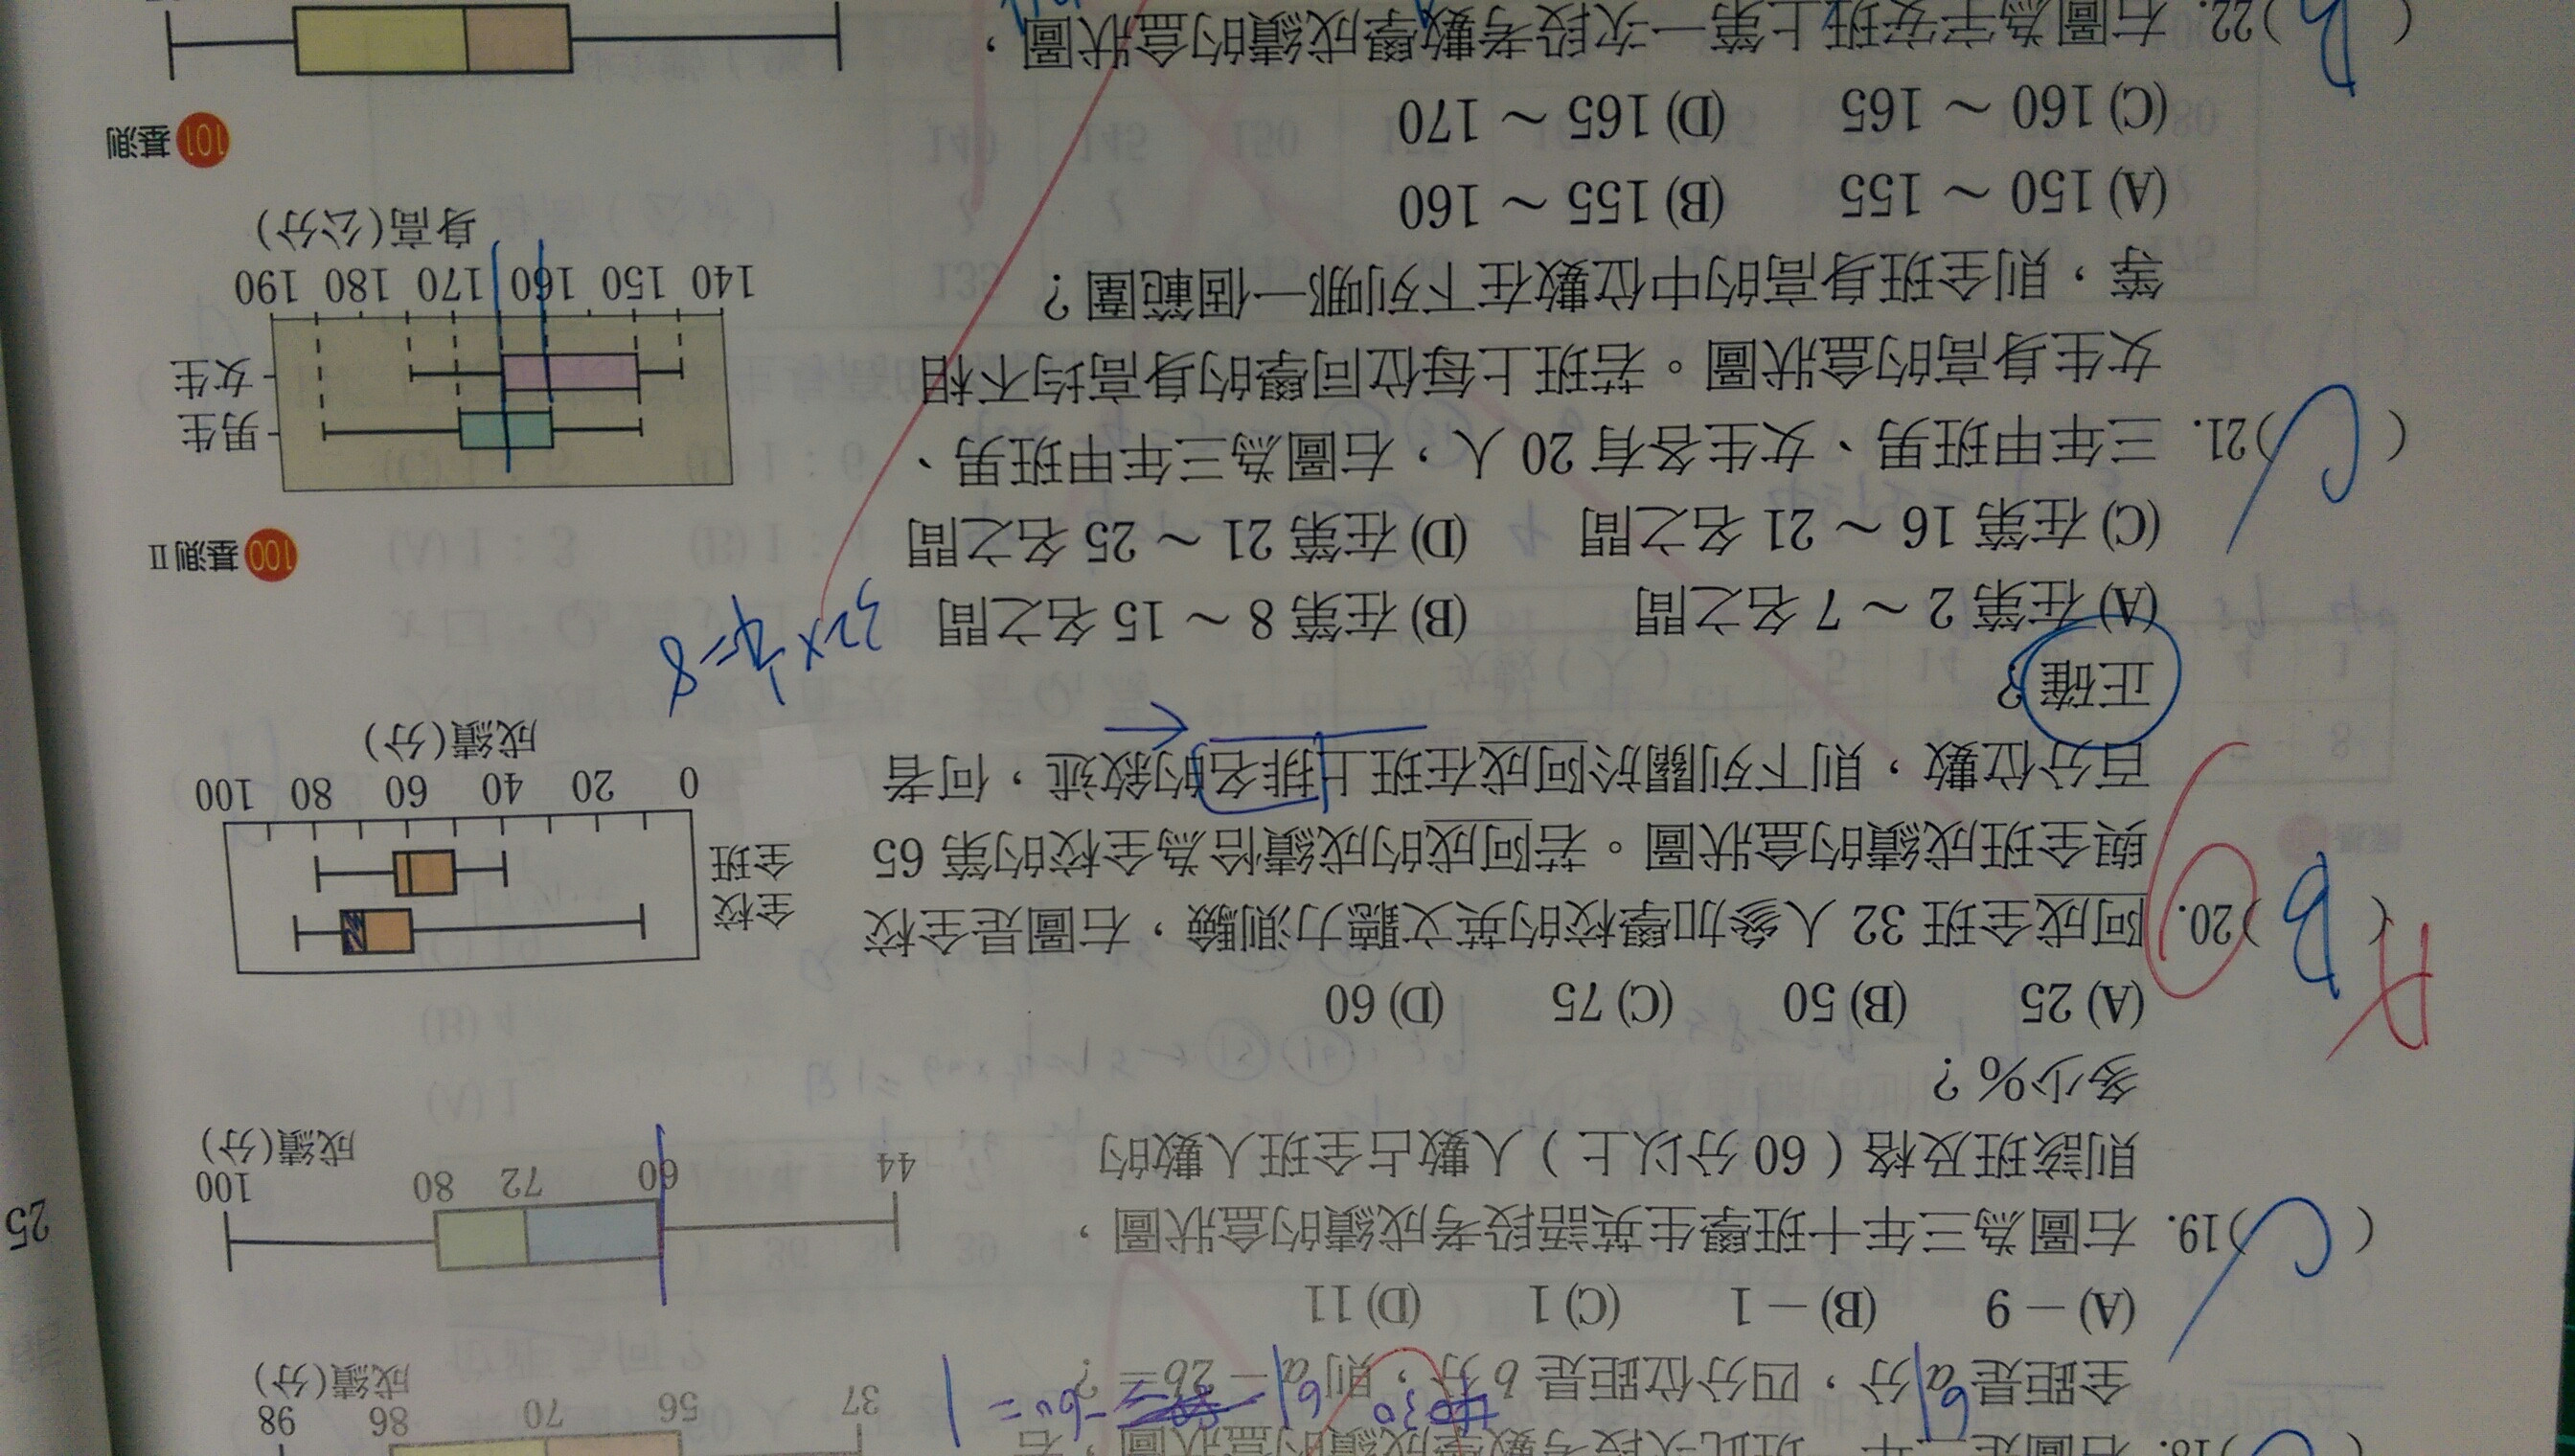 全距是 a 分，四分位距是 b 分，則 a － 2b ＝？
91
91
-90 = 1
(A) － 9 (B) － 1 (C) 1 (D) 11
37 56 70 86 98
成績(分)
( C )19. 右圖為三年十班學生英語段考成績的盒狀圖，
則該班及格（60 分以上）人數占全班人數的
多少%？
(A) 25 (B) 50 (C) 75 (D) 60
44 60 72 80 100
成績(分)
25
A
( B )20. 阿成全班 32 人參加學校的英文聽力測驗，右圖是全校
與全班成績的盒狀圖。若阿成的成績恰為全校的第 65
百分位數，則下列關於阿成在班上排名的敘述，何者
正確？
(A) 在第 2 ～ 7 名之間 (B) 在第 8 ～ 15 名之間
(C) 在第 16 ～ 21 名之間 (D) 在第 21 ～ 25 名之間
全校
全班
0 20 40 60 80 100
成績(分)
32×1/4=8
100 基測 II
( C )21. 三年甲班男、女生各有 20 人，右圖為三年甲班男、
女生身高的盒狀圖。若班上每位同學的身高均不相
等，則全班身高的中位數在下列哪一個範圍？
(A) 150 ～ 155 (B) 155 ～ 160
(C) 160 ～ 165 (D) 165 ～ 170
男生
女生
140 150 160 170 180 190
身高(公分)
101 基測
)22. 右圖為宇安班上第一次段考數學成績的盒狀圖，